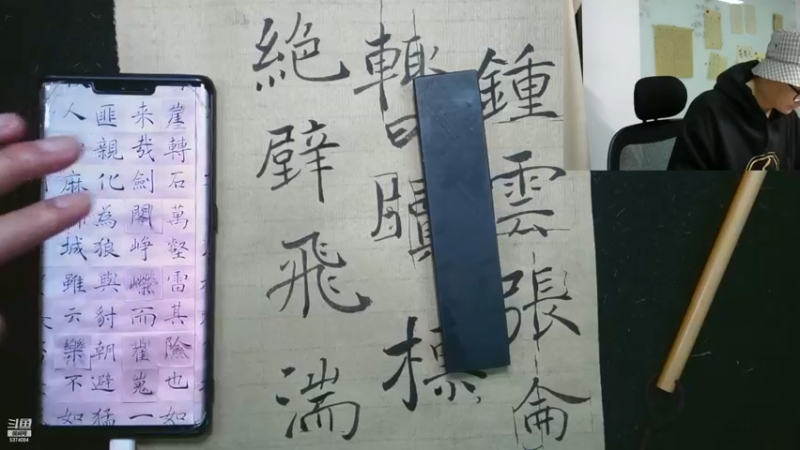 鍾雲張侖
標
絕壁飛湍
崖轉石萬壑雷其險也如
来哉劍閣崢嶸而崔嵬一
匪親化為狼與豺朝避猛
人麻城雖云樂不如
斗鱼
5374084